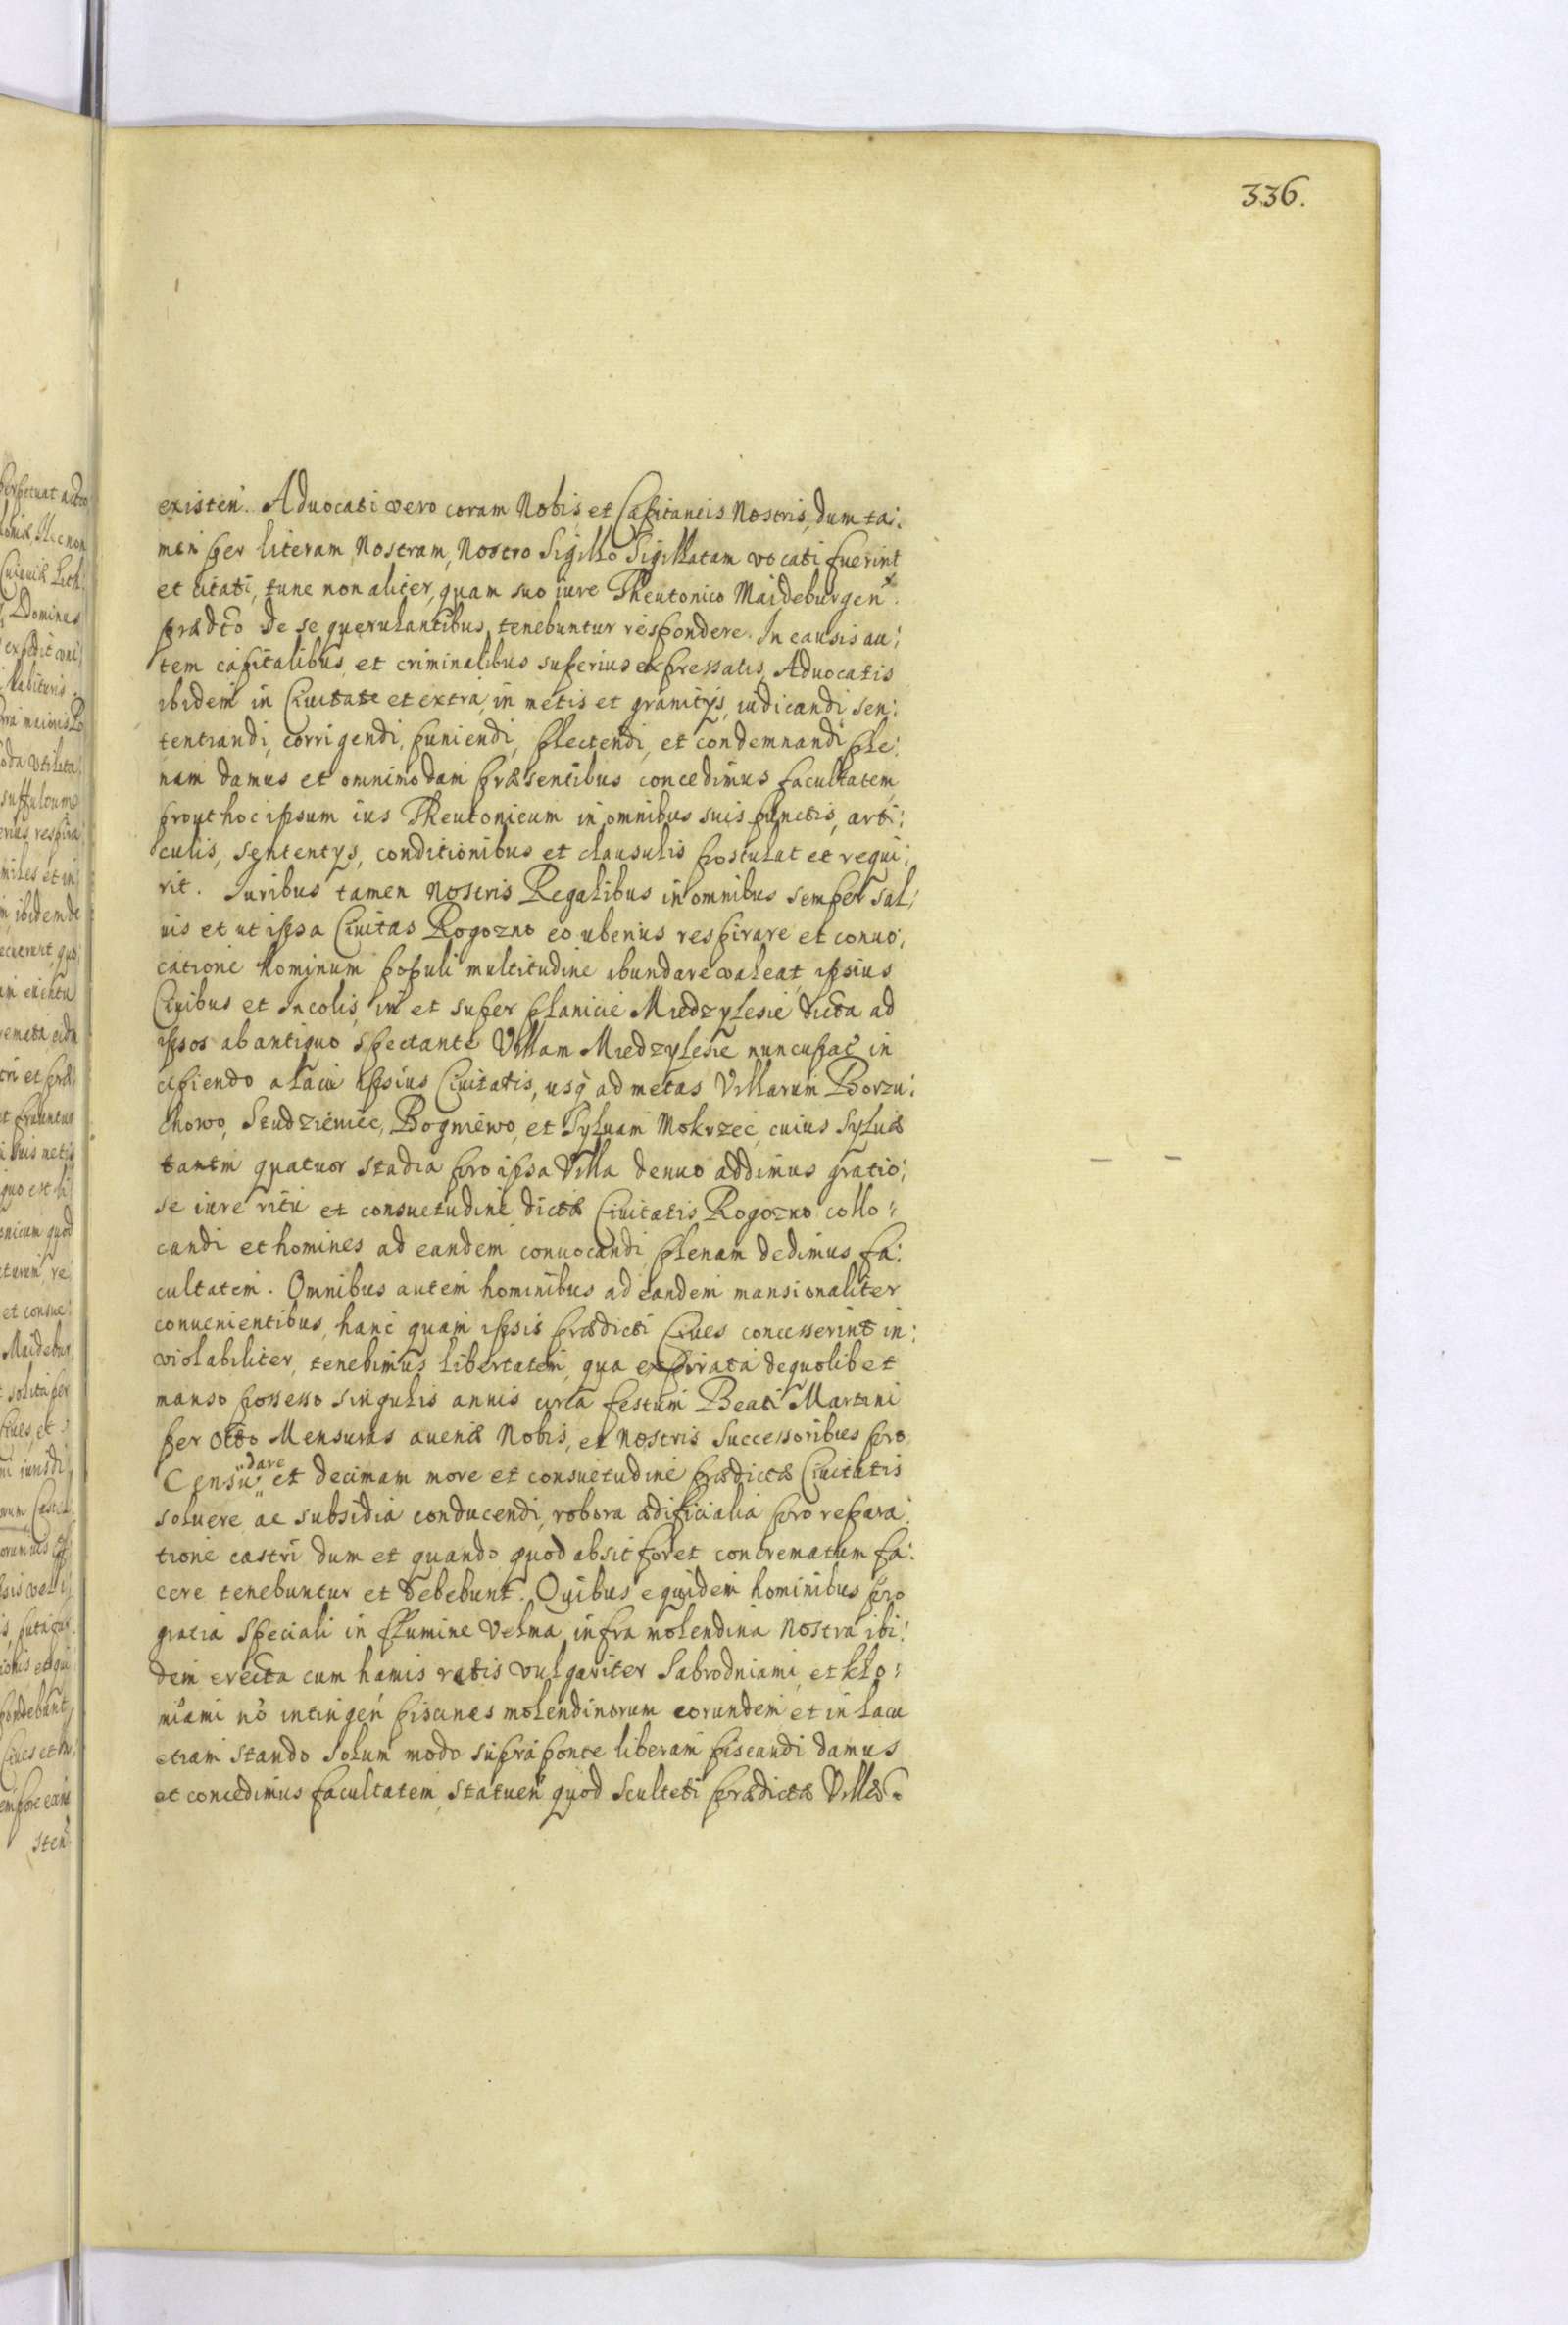 336.
existen. Advocati vero coram Nobis et Capitaneis Nostris, dum ta:
men per literam Nostram, Nostro Sigillo Sigillatam vocati fuerint
et citati, tunc non aliter, quam suo iure Theutonico Maideburgen.
prædto de se querulantibus tenebuntur respondere. In causis au:
tem capitalibus et criminalibus superius expressatis, Advocatis
ibidem in Civitate et extra, in metis et granitys, iudicandi sen:
tentiandi, corrigendi, puniendi, plectendi, et condemnandi ple:
nam damus et omnimodam præsentibus concedimus facultatem,
prout hoc ipsum ius Theutonicum in omnibus suis punctis, arti:
culis, sententys, conditionibus et clausulis postulat et requi:
rit. Iuribus tamen Nostris Regalibus in omnibus semper sal:
uis et ut ipsa Ciuitas Rogozno eo uberius respirare et conuo:
catione hominum populi multitudine abundare valeat, ipsius
Ciuibus et Incolis, in et super planicie Miedzylesie dicta ad
ipsos ab antiquo spectante Villam Miedzylesie nuncupat in
cipiendo a lacu ipsius Ciuitatis, usq ad metas Villarum Borzu:
chowo, Studzieniec, Bogniewo, et Syluam Mokrzec, cuius Syluæ
tantm quatuor stadia pro ipsa Villa denuo addimus gratio:
se iure ritu et consuetudine dictæ Ciuitatis Rogozno collo:
candi et homines ad eandem conuocandi plenam dedimus fa:
cultatem. Omnibus autem hominibus ad eandem mansionaliter
conuenientibus, hanc quam ipsis prædicti Ciues concesserint in:
violabiliter, tenebimus libertatem, qua expirata de quolibet
manso possesso singulis annis circa festum Beati Martini
per octo Mensuras auenæ Nobis, et Nostris Successoribus pro
Censu dare et decimam more et consuetudine prædictæ Ciuitatis
soluere ac subsidia conducendi, robora ædificialia pro repara:
tione castri dum et quando quod absit foret concrematum fa:
cere tenebuntur et debebunt. Quibus equidem hominibus pro
gratia speciali in flumine Velna infra molendina Nostra ibi:
dem erecta cum hamis retis vulgariter Sabrodniami, et klo:
niami no intingen piscines molendinorum eorundem et in lacu
etiam stando solum modo supra ponte liberam piscandi damus
et concedimus facultatem, statuen quod Sculteti prædictæ Villæ